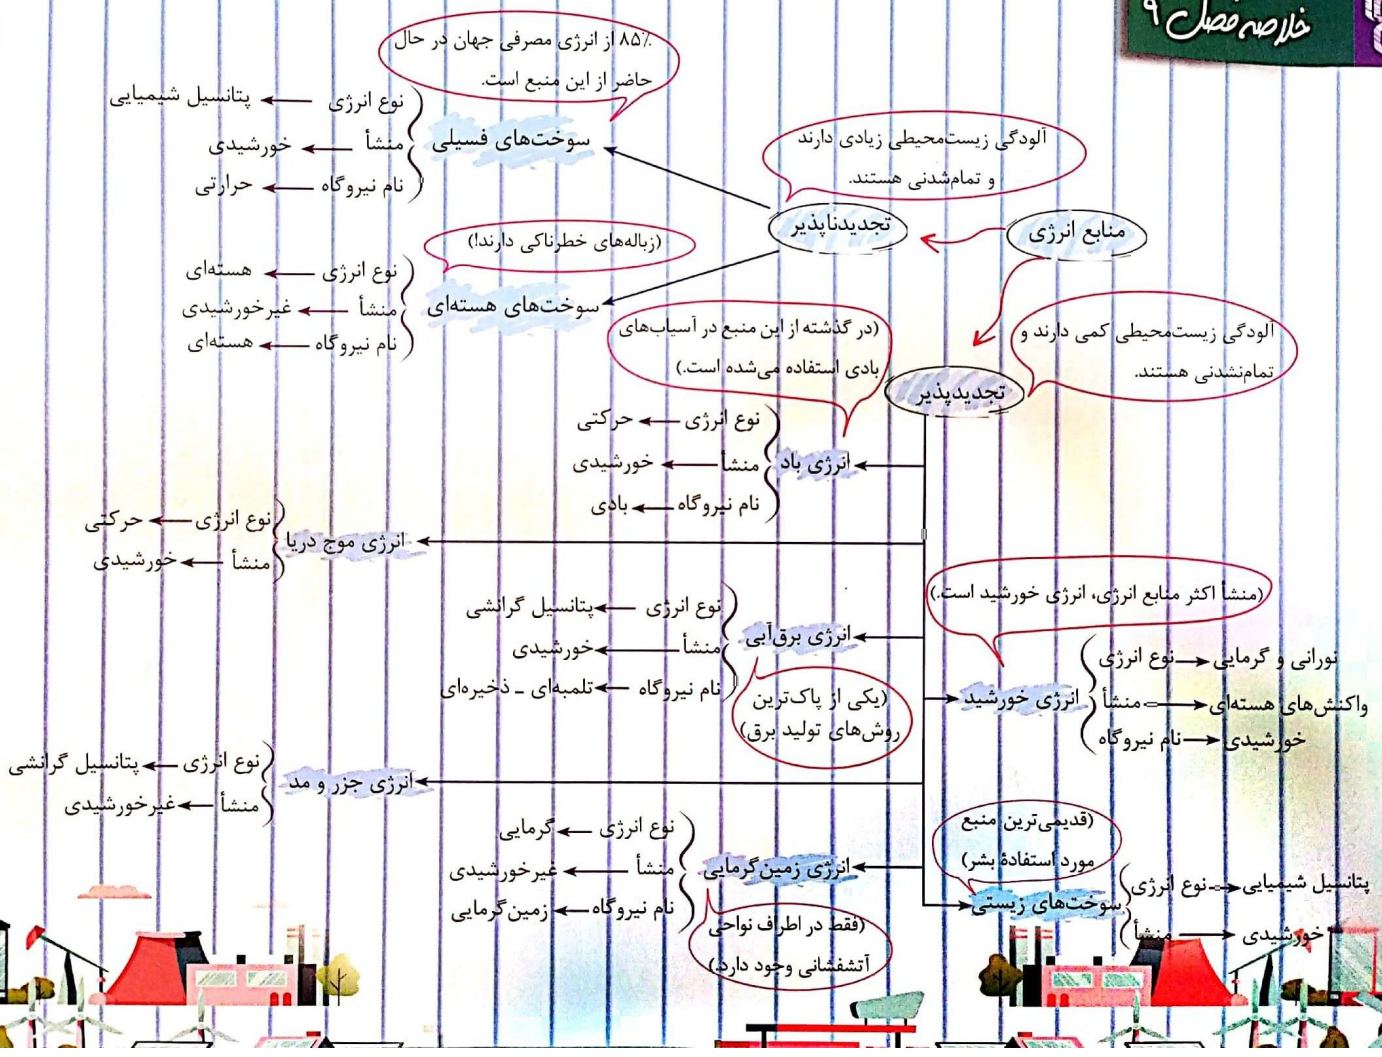 خلاصه فصل ۹
منابع انرژی
تجدیدناپذیر
آلودگی زیست‌محیطی زیادی دارند
و تمام‌شدنی هستند.
سوخت‌های فسیلی
۸۵٪ از انرژی مصرفی جهان در حال
حاضر از این منبع است.
نوع انرژی ← پتانسیل شیمیایی
منشأ ← خورشیدی
نام نیروگاه ← حرارتی
سوخت‌های هسته‌ای
(زباله‌های خطرناکی دارند!)
نوع انرژی ← هسته‌ای
منشأ ← غیرخورشیدی
نام نیروگاه ← هسته‌ای
تجدیدپذیر
آلودگی زیست‌محیطی کمی دارند و
تمام‌نشدنی هستند.
انرژی باد
(در گذشته از این منبع در آسیاب‌های
بادی استفاده می‌شده است.)
نوع انرژی ← حرکتی
منشأ ← خورشیدی
نام نیروگاه ← بادی
انرژی موج دریا
نوع انرژی ← حرکتی
منشأ ← خورشیدی
انرژی برق‌آبی
نوع انرژی ← پتانسیل گرانشی
منشأ ← خورشیدی
نام نیروگاه ← تلمبه‌ای ـ ذخیره‌ای
(یکی از پاک‌ترین
روش‌های تولید برق)
انرژی خورشید
(منشأ اکثر منابع انرژی، انرژی خورشید است.)
نورانی و گرمایی ← نوع انرژی
واکنش‌های هسته‌ای ← منشأ
خورشیدی ← نام نیروگاه
انرژی جزر و مد
نوع انرژی ← پتانسیل گرانشی
منشأ ← غیرخورشیدی
انرژی زمین‌گرمایی
نوع انرژی ← گرمایی
منشأ ← غیرخورشیدی
نام نیروگاه ← زمین‌گرمایی
(فقط در اطراف نواحی
آتشفشانی وجود دارد.)
سوخت‌های زیستی
(قدیمی‌ترین منبع
مورد استفادهٔ بشر)
پتانسیل شیمیایی ← نوع انرژی
خورشیدی ← منشأ